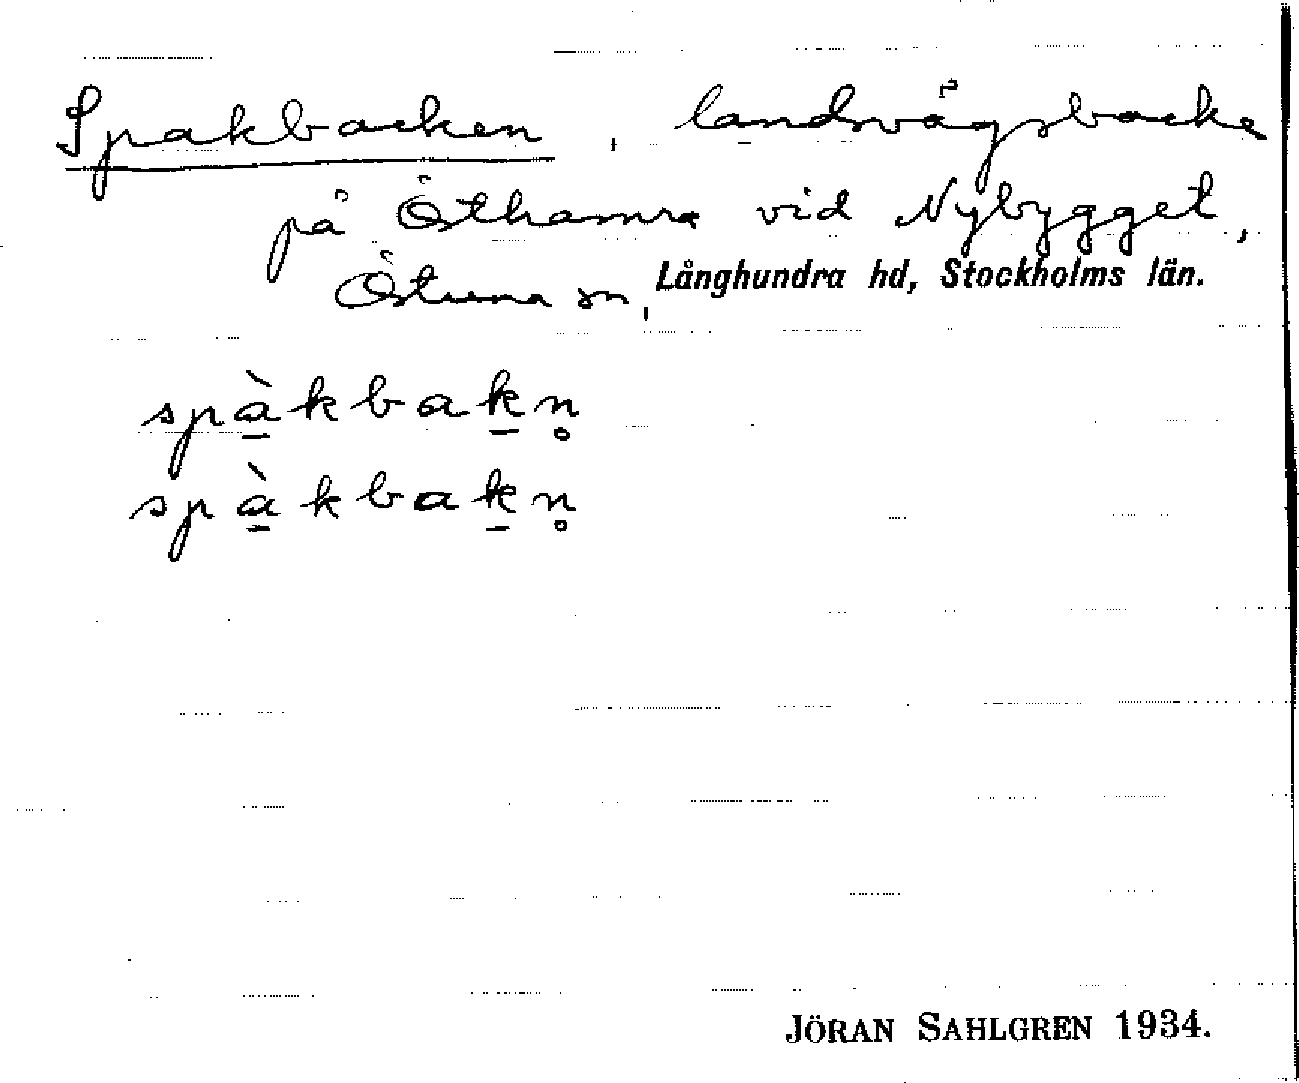 Spakbacken, landsvägsbacke
på Östhamra vid Nybygget,
Östuna sn, Långhundra hd, Stockholms län.
spà̱kbaḵn̥
spà̱kbaḵn̥
JÖRAN SAHLGREN 1934.